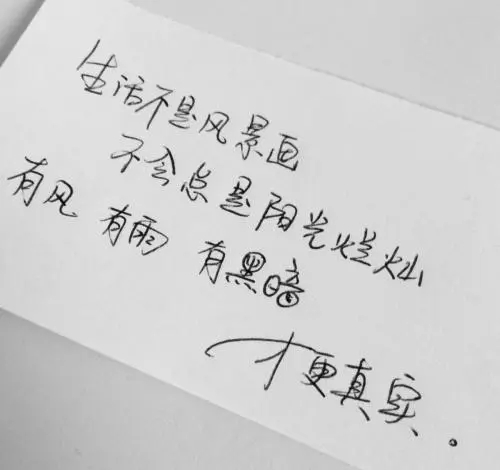 生活不是风景画
不会总是阳光烂灿
有风 有雨 有黑暗
才更真实。